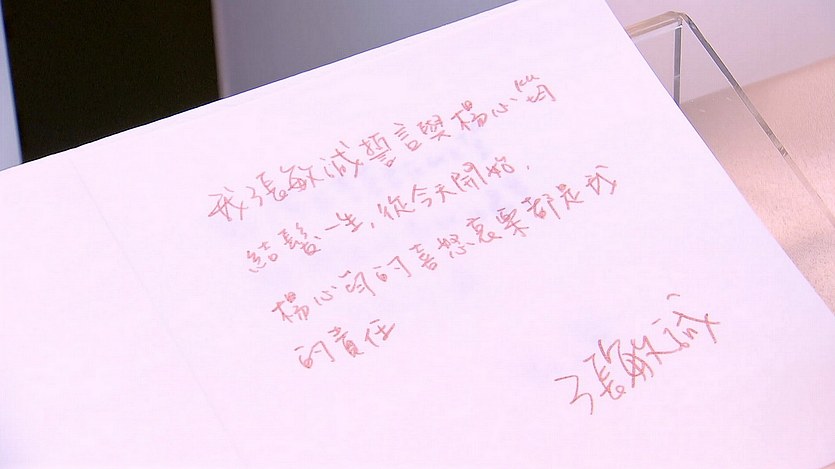 我張敏誠誓言與楊心筠
結髮一生，從今天開始，
楊心筠的喜怒哀樂都是我
的責任
張敏誠